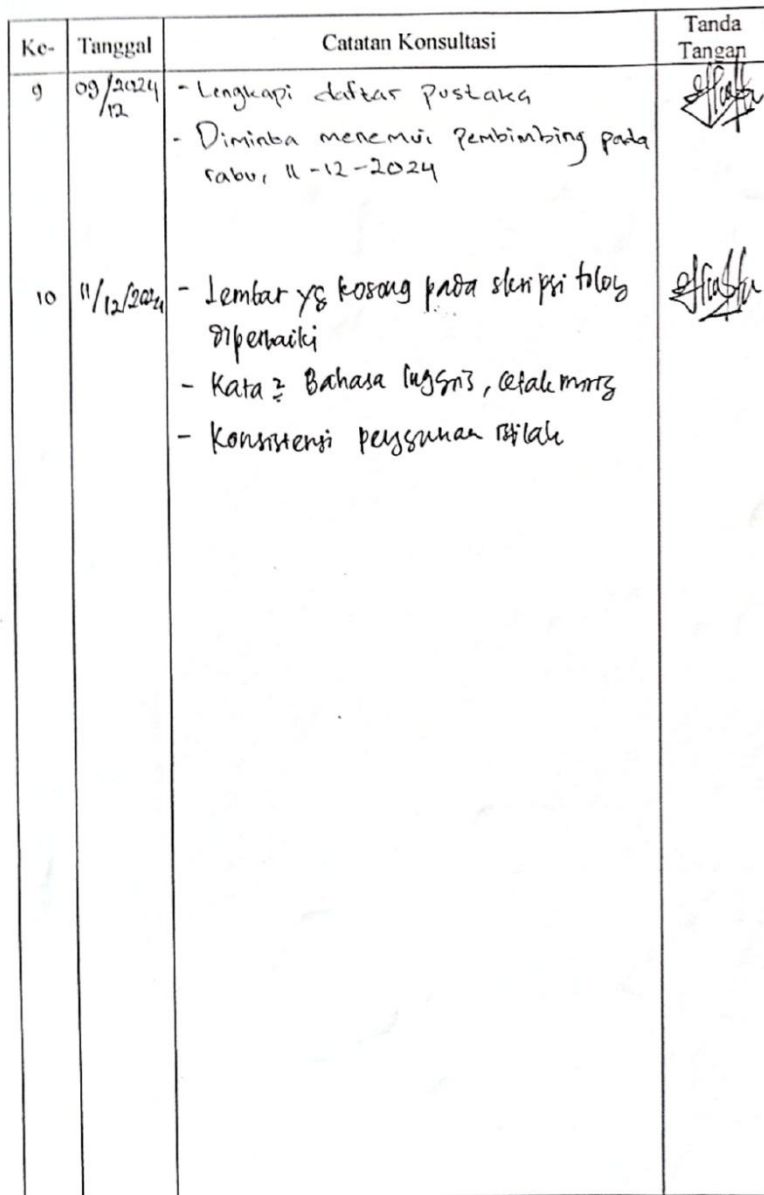 Ke- Tanggal Catatan Konsultasi Tanda Tangan
9 09/12/2024 - Lengkapi daftar pustaka
- Diminta menemui Pembimbing pada
rabu, 11-12-2024
10 11/12/2024 - Lembar yg kosong pada skripsi tolog
diperbaiki
- Kata2 Bahasa Inggris, cetak miring
- Konsistensi penggunaan istilah